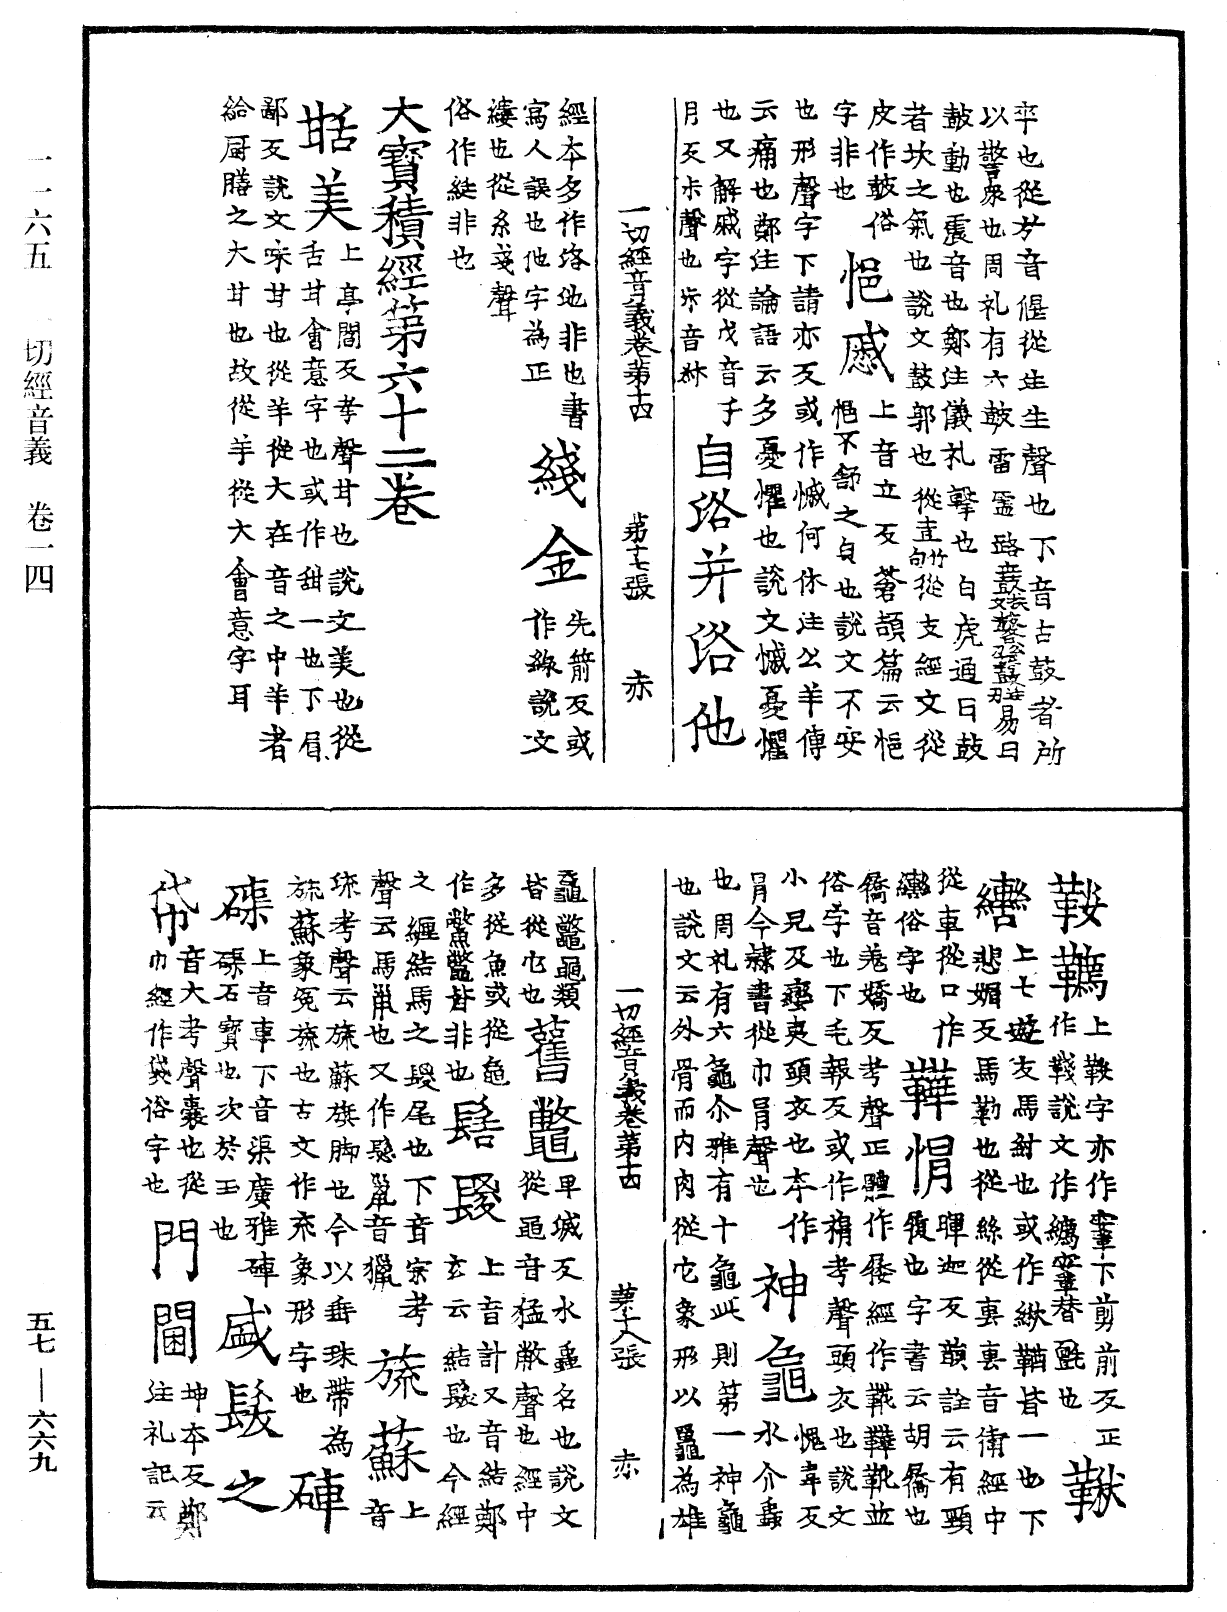 一一六五　一切經音義　卷一四
卒也從夲音偃從㞷生聲也下音古鼓者所
以警衆也周礼有六鼓雷靈路鼖鼛晉易曰
鼓動也震音也鄭注儀礼擊也白虎通曰鼓
者坎之氣也說文鼓郭也從壴從支經文從
皮作皷俗
字非也
悒慼
上音立反蒼頡篇云悒
悒不舒之皃也說文不安
也形聲字下請亦反或作慽何休注公羊傳
云痛也鄭注論語云多憂懼也說文慽憂懼
也又解戚字從戉音于
月反尗聲也尗音叔
自䛿并䛿他
一切經音義卷第十四　第十七張　赤
經本多作洛沲非也書
寫人誤也他字為正
綫金
先箭反或
作線說文
縷也從糸戔聲
俗作綖非也
大寶積經第六十二卷
甛美
上亭閻反孝聲甘也說文美也從
舌甘會意字也或作甜一也下眉
鄙反說文味甘也從羊從大在音之中羊者
給厨膳之大甘也故從羊從大會意字耳
鞍韉
上鞍字亦作鞌下剪前反正
作韀說文作韉鞌替氈也
鞦轡
上七遊友馬紂也或作緧鞧皆一也下
悲媚反馬勒也從絲從軎軎音衛經中
從車從口作
轡俗字也
鞾㡌
暉迦反韻詮云有頸
履也字書云胡屩也
屩音羗嬌反考聲正體作屨經作韈鞾靴並
俗字也下毛報反或作㡌考聲頭衣也說文
小兒及蠻夷頭衣也本作
冃今隷書從巾冃聲也
神龜
愧韋反
水介蟲
也周礼有六龜尒雅有十龜此則第一神龜
也說文云外骨而内肉從它象形以黽為雄
一切經音義卷第十四　第十八張　赤
龜鼈黽類
皆從它也
舊鼈
卑滅反水蟲名也說文
從黽音猛敝聲也經中
多從魚或從龜
作鱉鼈皆非也
髻騣
上音計又音結鄭
玄云結髮也今經
之纒結馬之騣尾也下音宗考
聲云馬鬛也又作鬉鬛音獵
旒蘇
上
音
琉考聲云旒蘇旗脚也今以垂珠帶為
旒蘇象冕旒也古文作㐬象形字也
硨磲
上音車下音渠廣雅硨
磲石寶也次於玉也
盛髮之帒
音大考聲囊也從
巾經作袋俗字也
門閫
坤本反鄭
注礼記云
五七—六六九